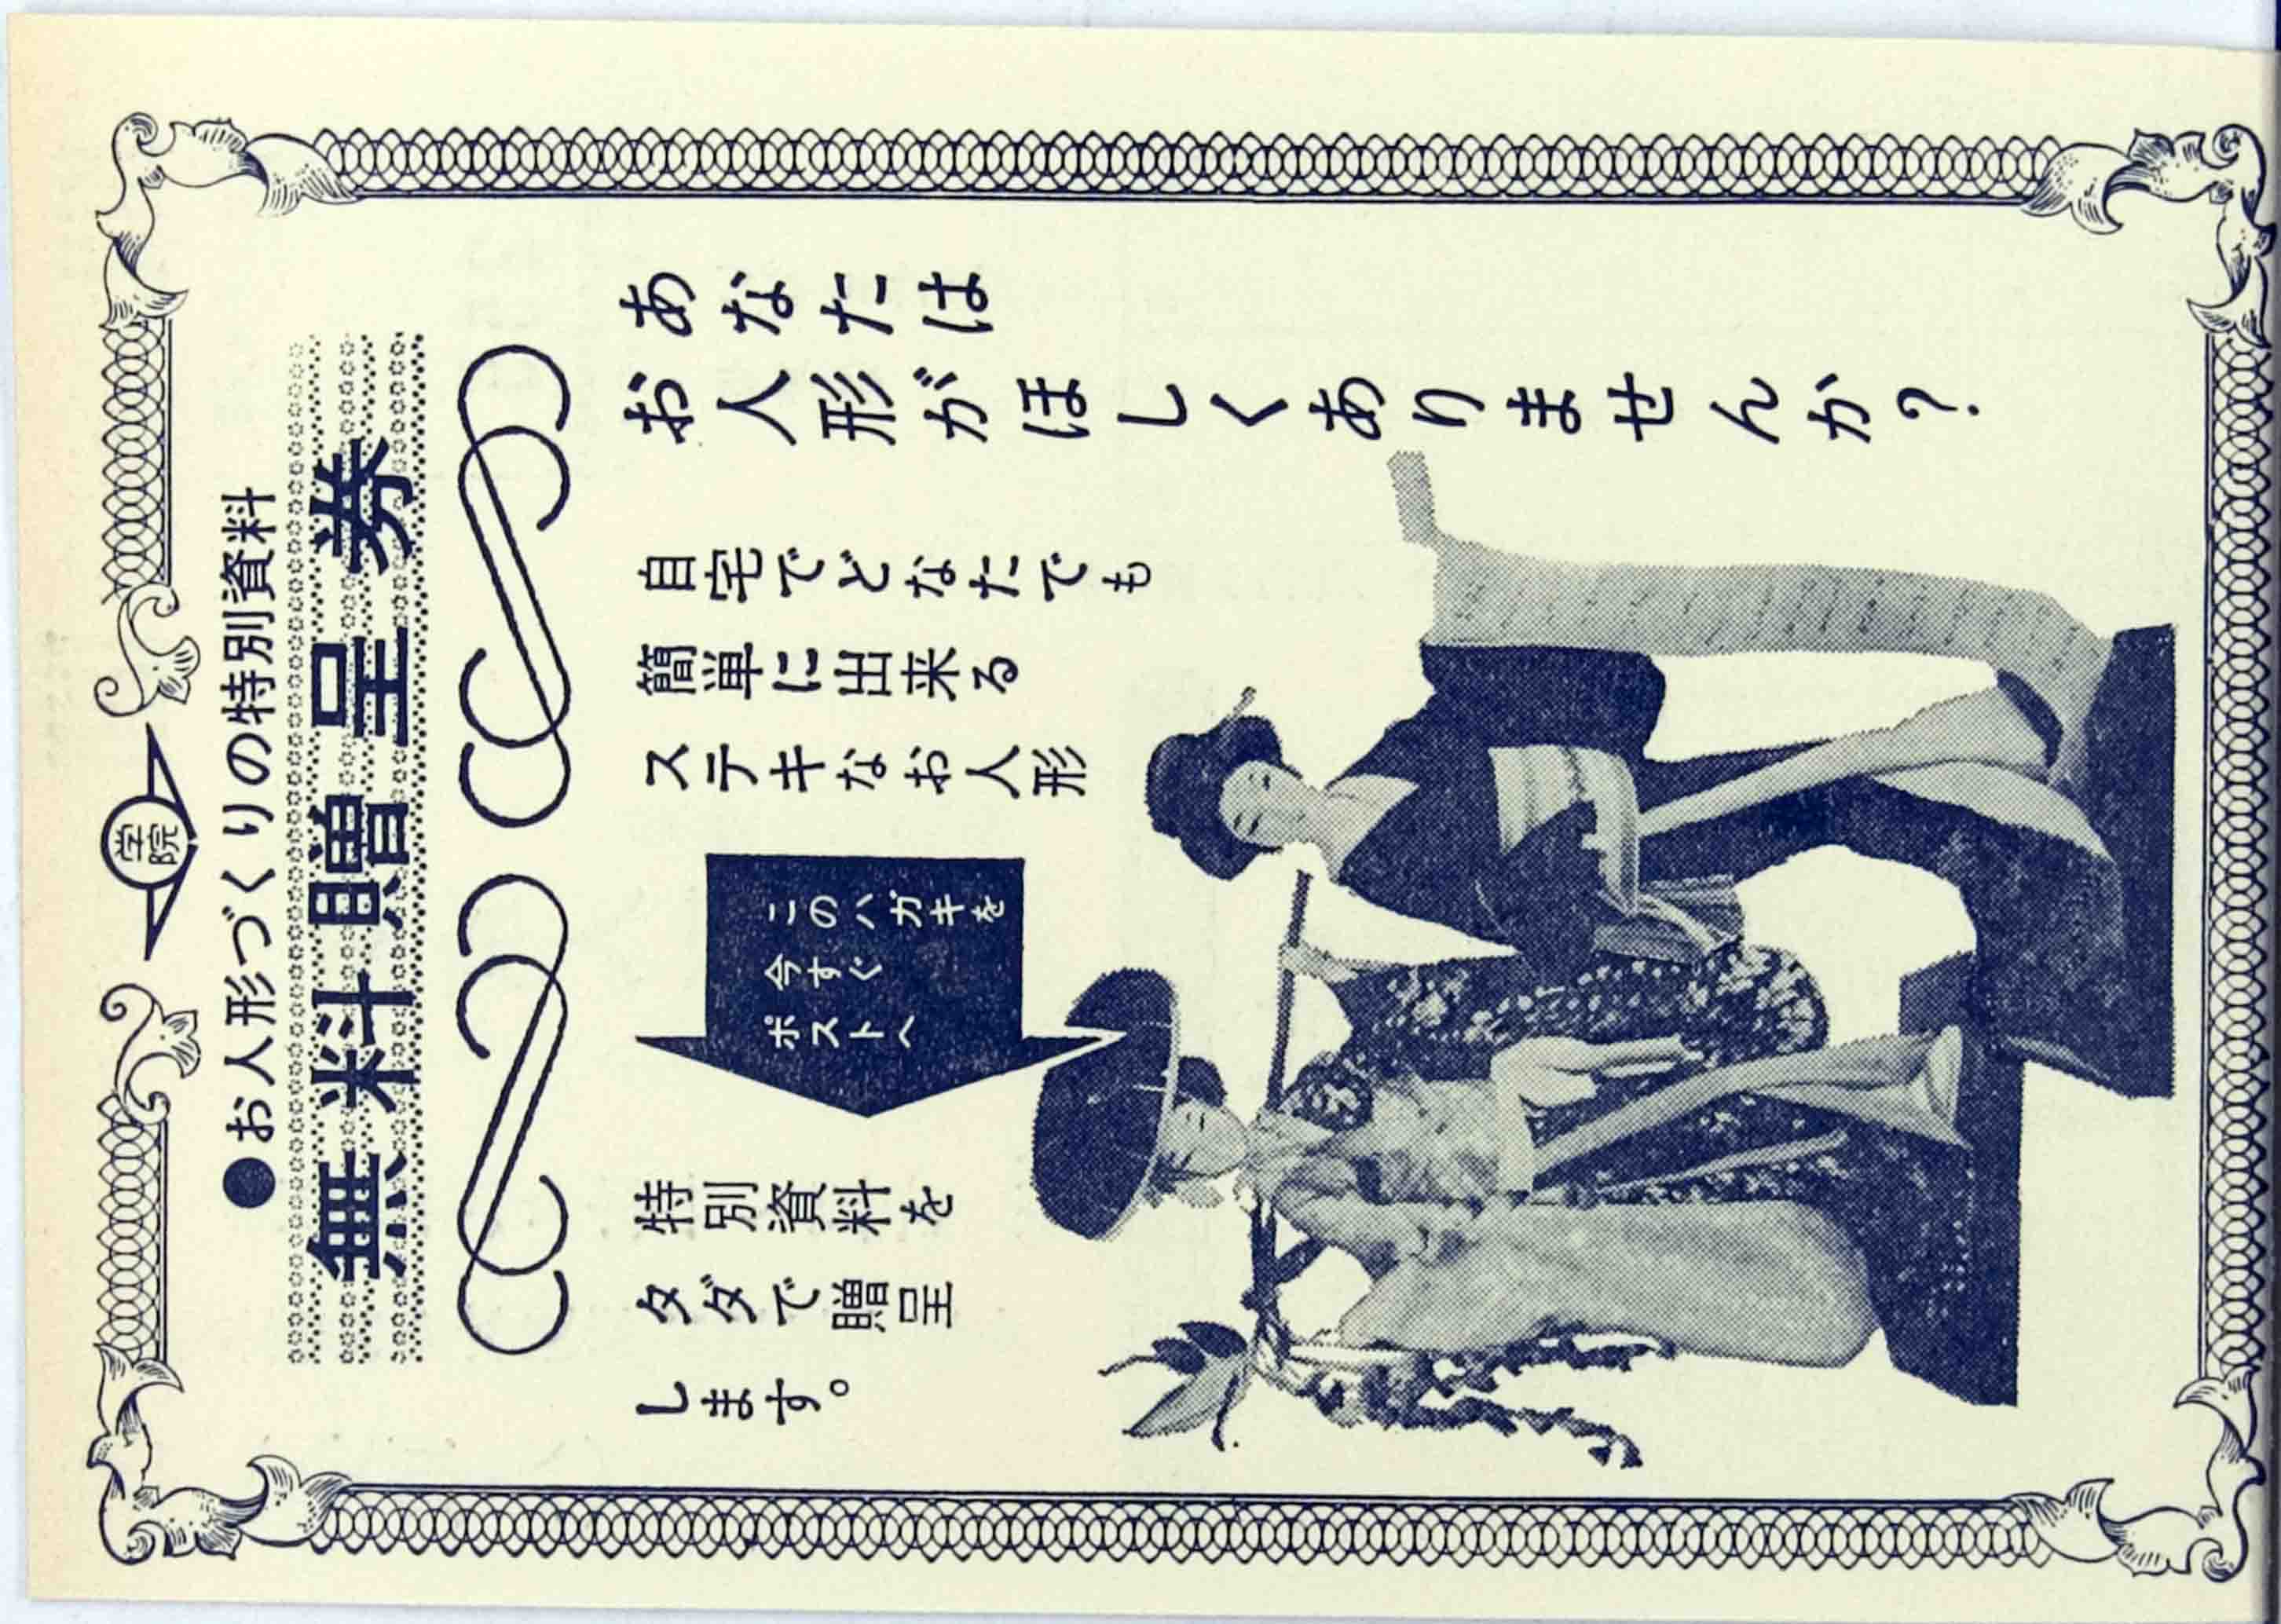 学院
●お人形づくりの特別資料
無料贈呈券
あなたは
お人形がほしくありませんか？
自宅でどなたでも
簡単に出来る
ステキなお人形
このハガキを
今すぐ
ポストへ
特別資料を
タダで贈呈
します。